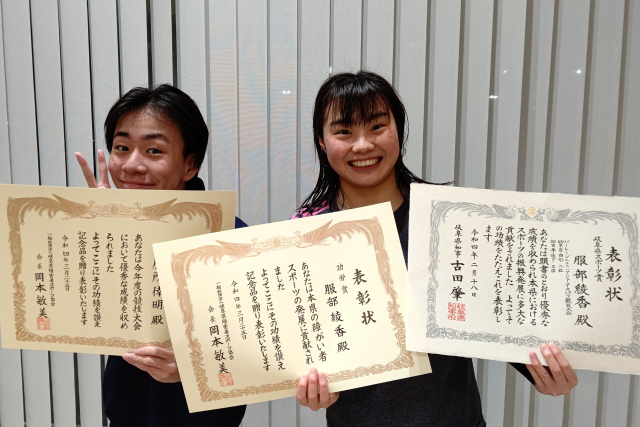 殿
あなたは今年度の競技大会
において優秀な成績を収め
られました
よってここにその功績を讃え
記念品を贈り表彰いたします
令和四年三月二十日
会長 岡本敏美
表彰状
功労賞
服部 綾香 殿
あなたは本県の障がい者
スポーツの発展に貢献され
ました
よってここにその功績を讃え
記念品を贈り表彰いたします
令和四年三月二十五日
一般社団法人岐阜県障害者スポーツ協会
会長 岡本敏美
表彰状
岐阜県スポーツ賞
服部 綾香 殿
あなたは頭書のとおり優秀な
成績を収められ本県における
スポーツの振興発展に多大な
貢献をされました よってそ
の功績をたたえこれを表彰し
ます
令和四年二月十八日
岐阜県知事 古田 肇